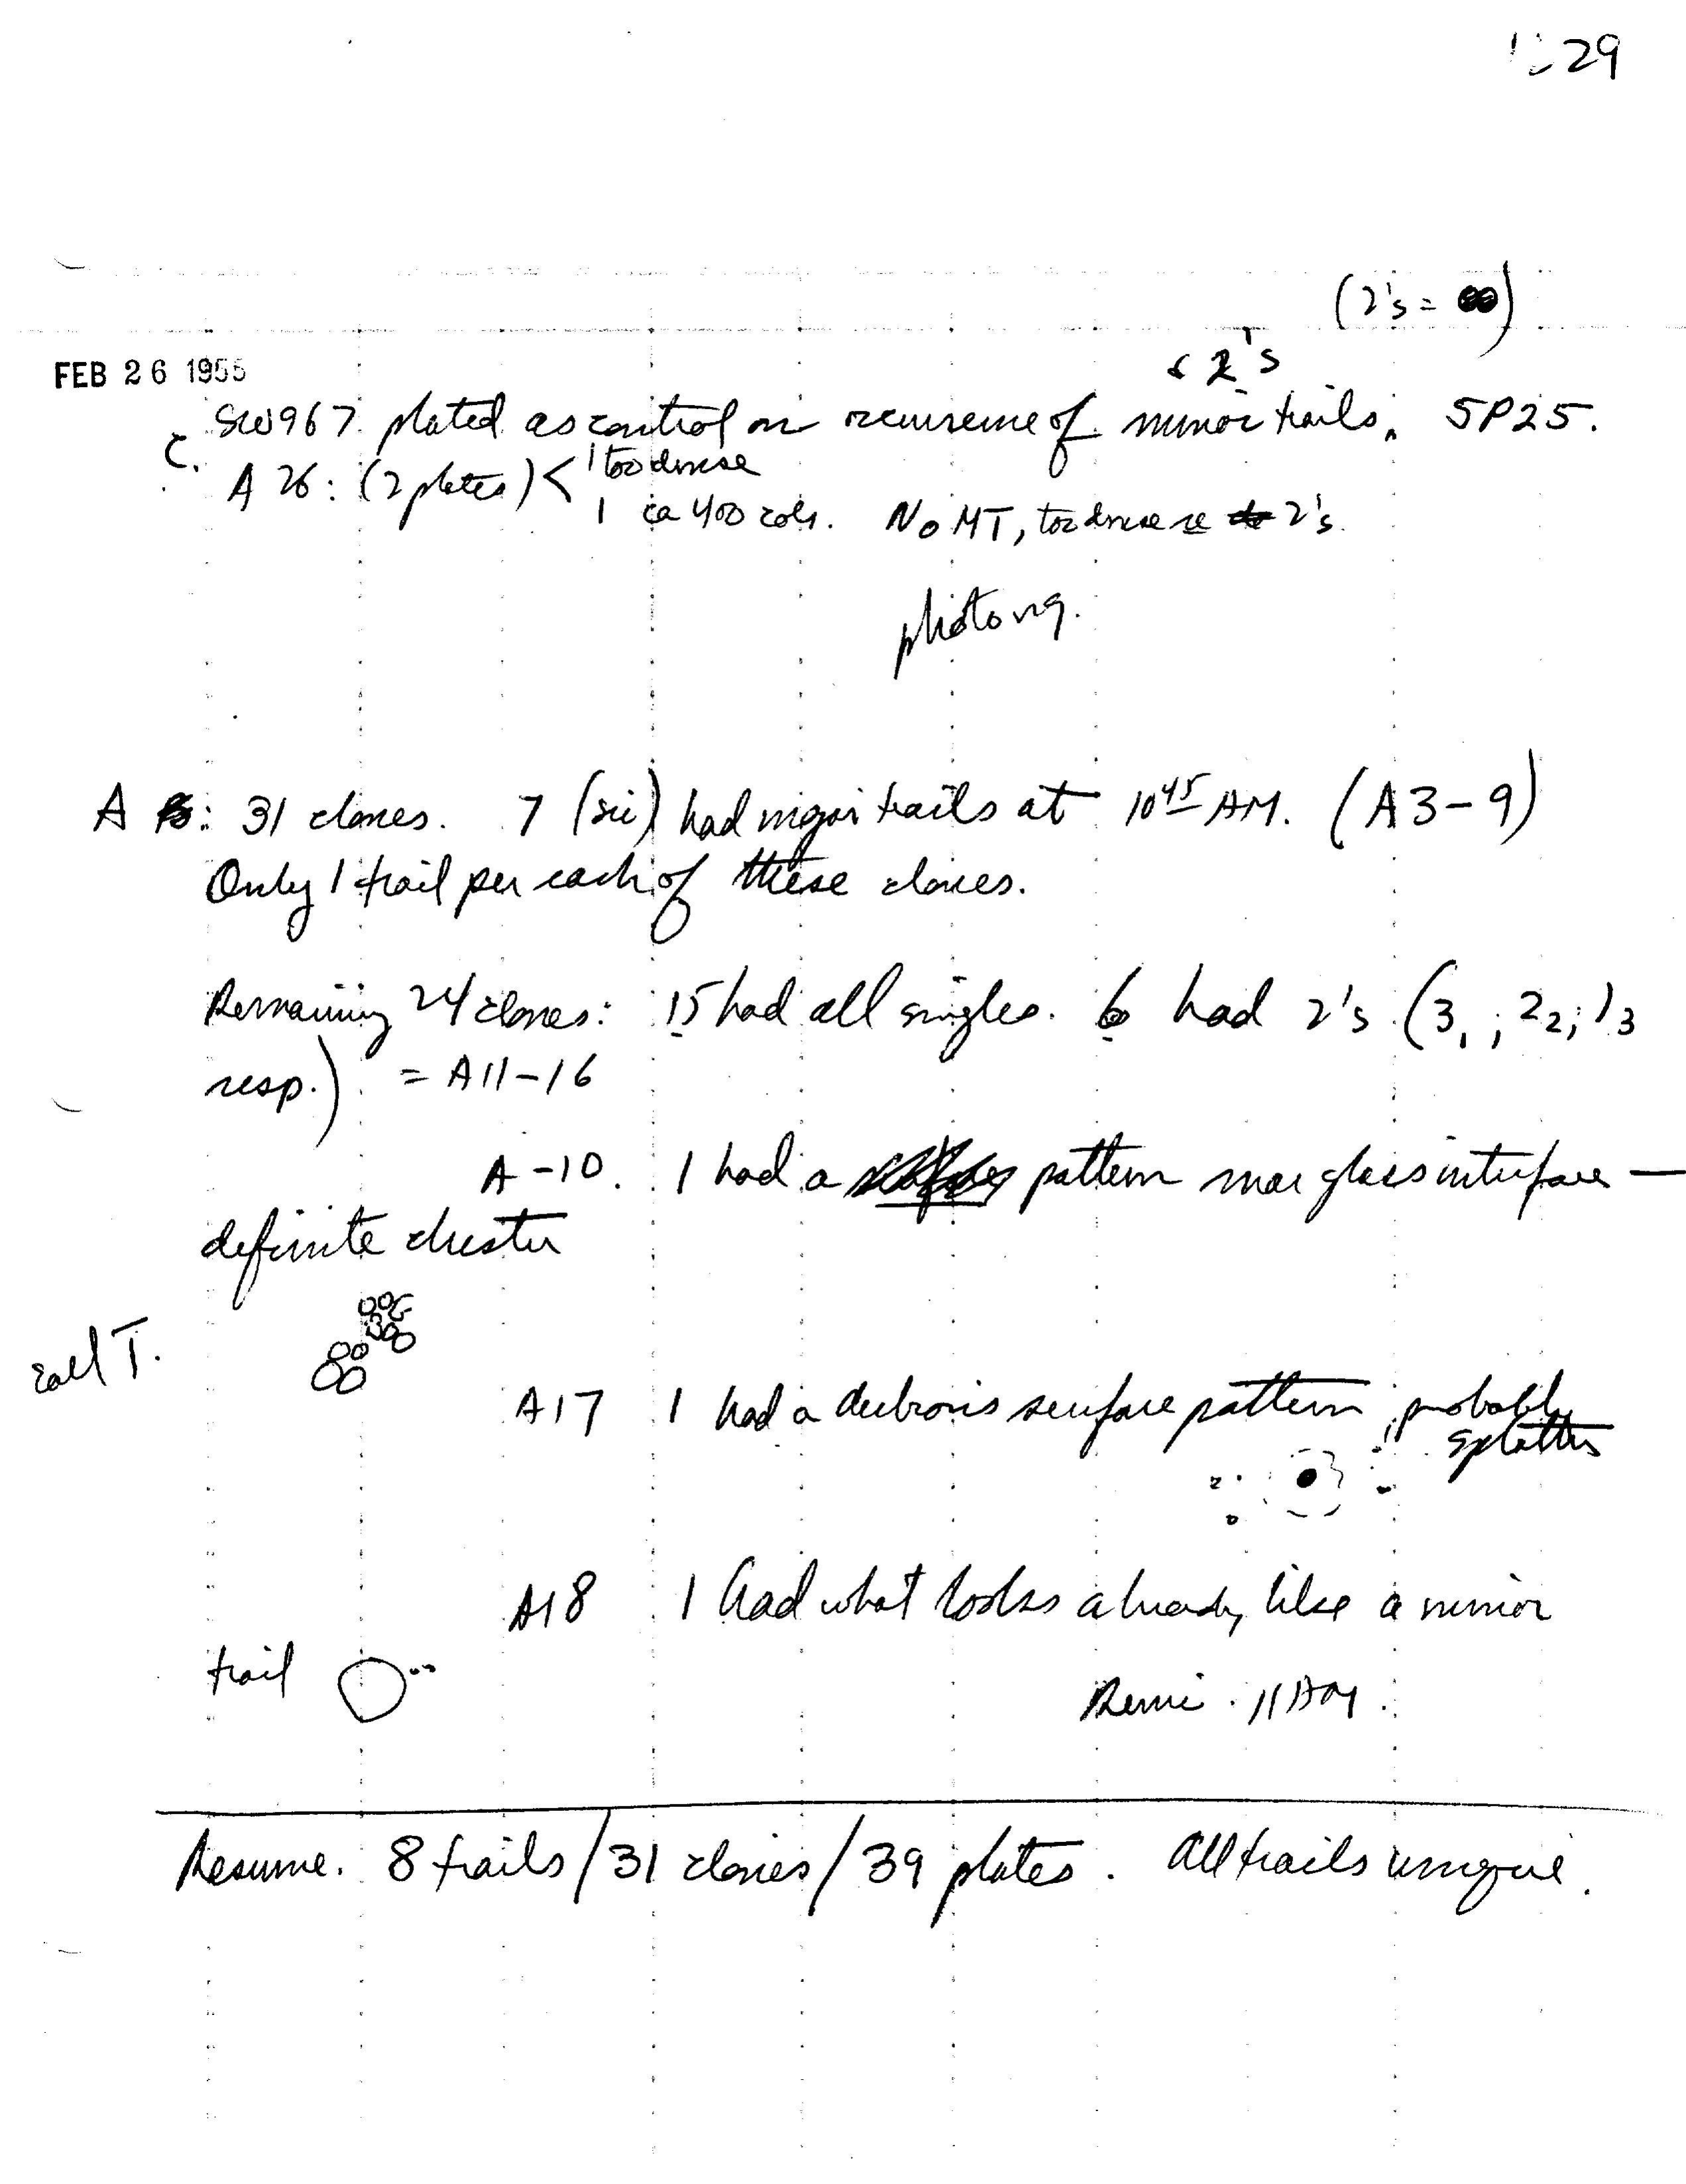 29
(2's = )
FEB 26 1955
& 2's
C. SW967 plated as control on recurrence of minor trails. SP25.
A 26: (2 plates) < 1 too dense
1 ca 400 cols. No MT, too dense re 2's.
photo ng.
A : 31 clones. 7 (sic) had major trails at 10 45 AM. (A3-9)
Only 1 trail per each of these clones.
Remaining 24 clones: 15 had all singles. 6 had 2's (3₁; 2₂; 1₃
resp.) = A11-16
A-10. 1 had a pattern near glass interface —
definite cluster
call T.
A17 1 had a dubious surface pattern, probably
splatter
A18 1 had what looks already like a minor
trail
11 AM.
Resume. 8 trails/31 clones/39 plates. All trails unique.